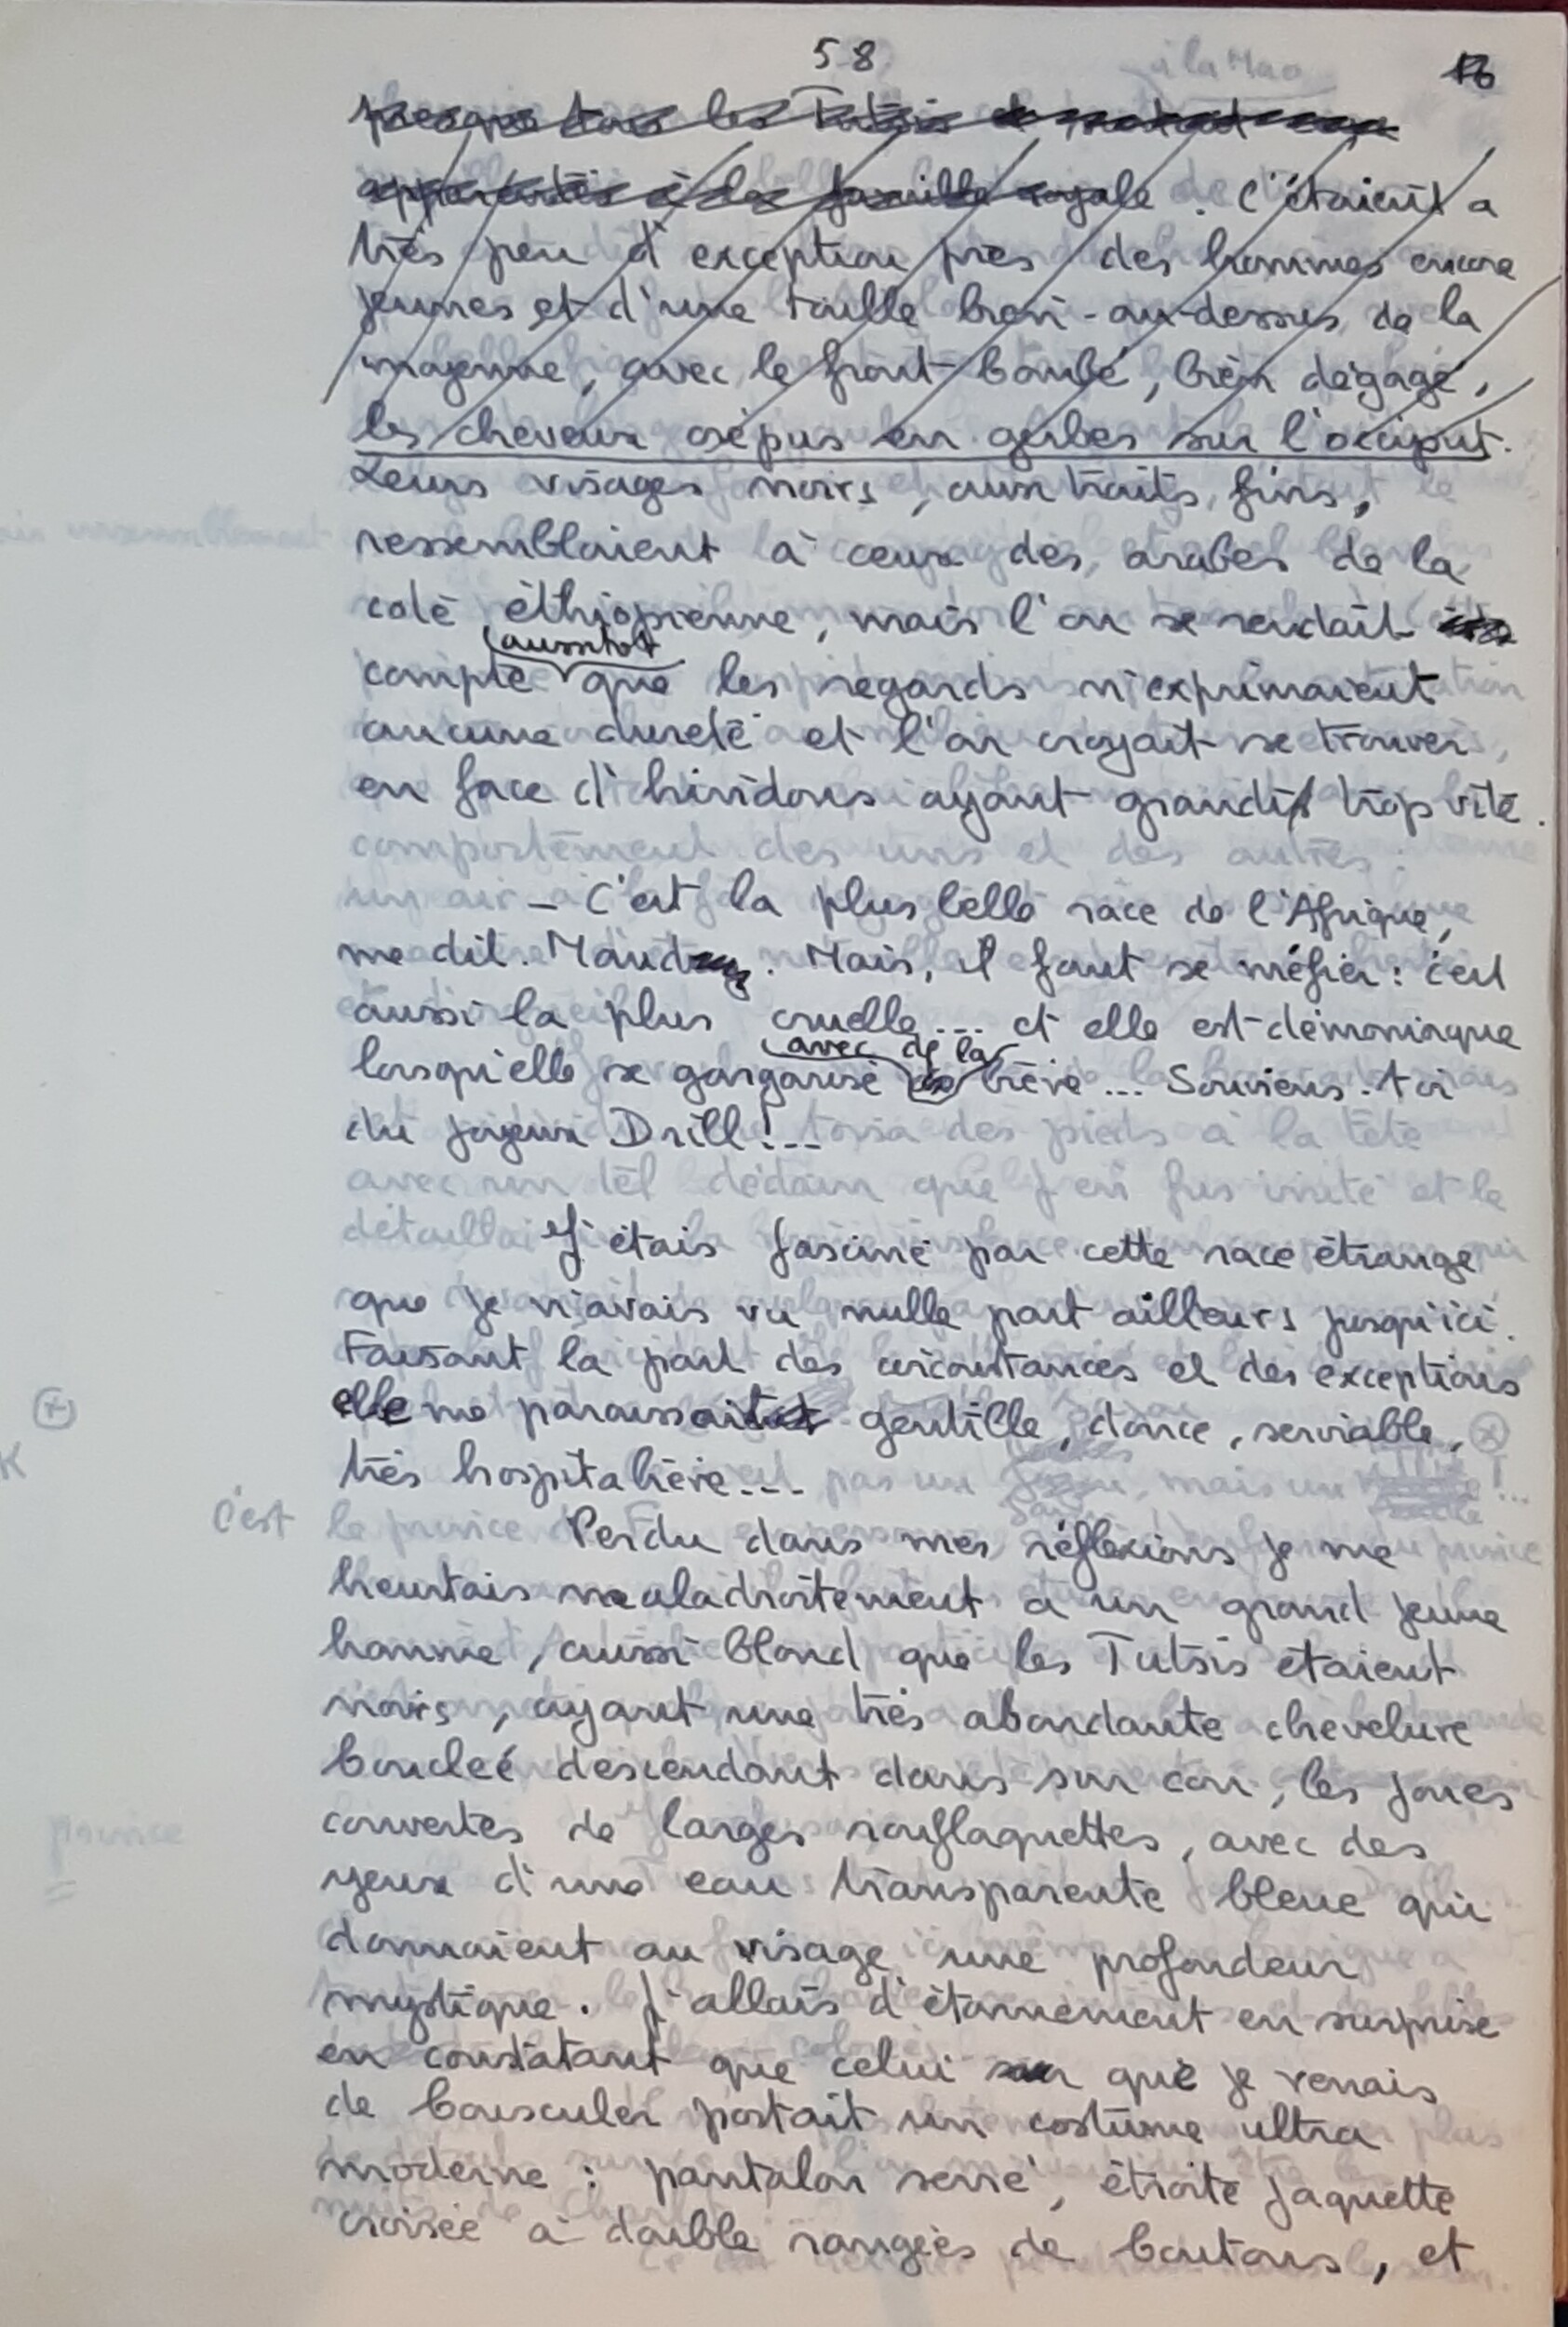 58
presque tous les Tutsis
apparentés à la famille royale. C'étaient a
très peu d'exception près des hommes encore
jeunes et d'une taille bien-au-dessus de la
moyenne, avec le front bombé, bien dégagé,
les cheveux crépus en gerbes sur l'occiput.
Leurs visages noirs, aux traits fins,
ressemblaient à ceux des arabes de la
coté éthiopienne, mais l'on se rendait
aussitot
compte que les regards n'exprimaient
aucune dureté et l'on croyait se trouver
en face d'hindous ayant grandi trop vite.
— C'est la plus belle race de l'Afrique,
me dit. Maud. Mais, il faut se méfier : c'est
aussi la plus cruelle... et elle est démoniaque
avec de la
lorsqu'elle se gargarise bière... Souviens-toi
du joyeux Drill!...
J'étais fasciné par cette race étrange
que je n'avais vu nulle part ailleurs jusqu'ici.
Faisant la part des circonstances et des exceptions
elle me paraissait gentille, douce, serviable,
très hospitalière...
Perdu dans mes réflexions je me
heurtais maladroitement a un grand jeune
homme, aussi blond que les Tutsis étaient
noirs, ayant une très abondante chevelure
bouclée descendant dans son cou, les joues
couvertes de larges rouflaquettes, avec des
yeux d'une eau transparente bleue qui
donnaient au visage une profondeur
mystique. J'allais d'étonnement en surprise
en constatant que celui que je venais
de bousculer portait un costume ultra
moderne : pantalon serré, étroite jaquette
croisée à double rangées de boutons, et